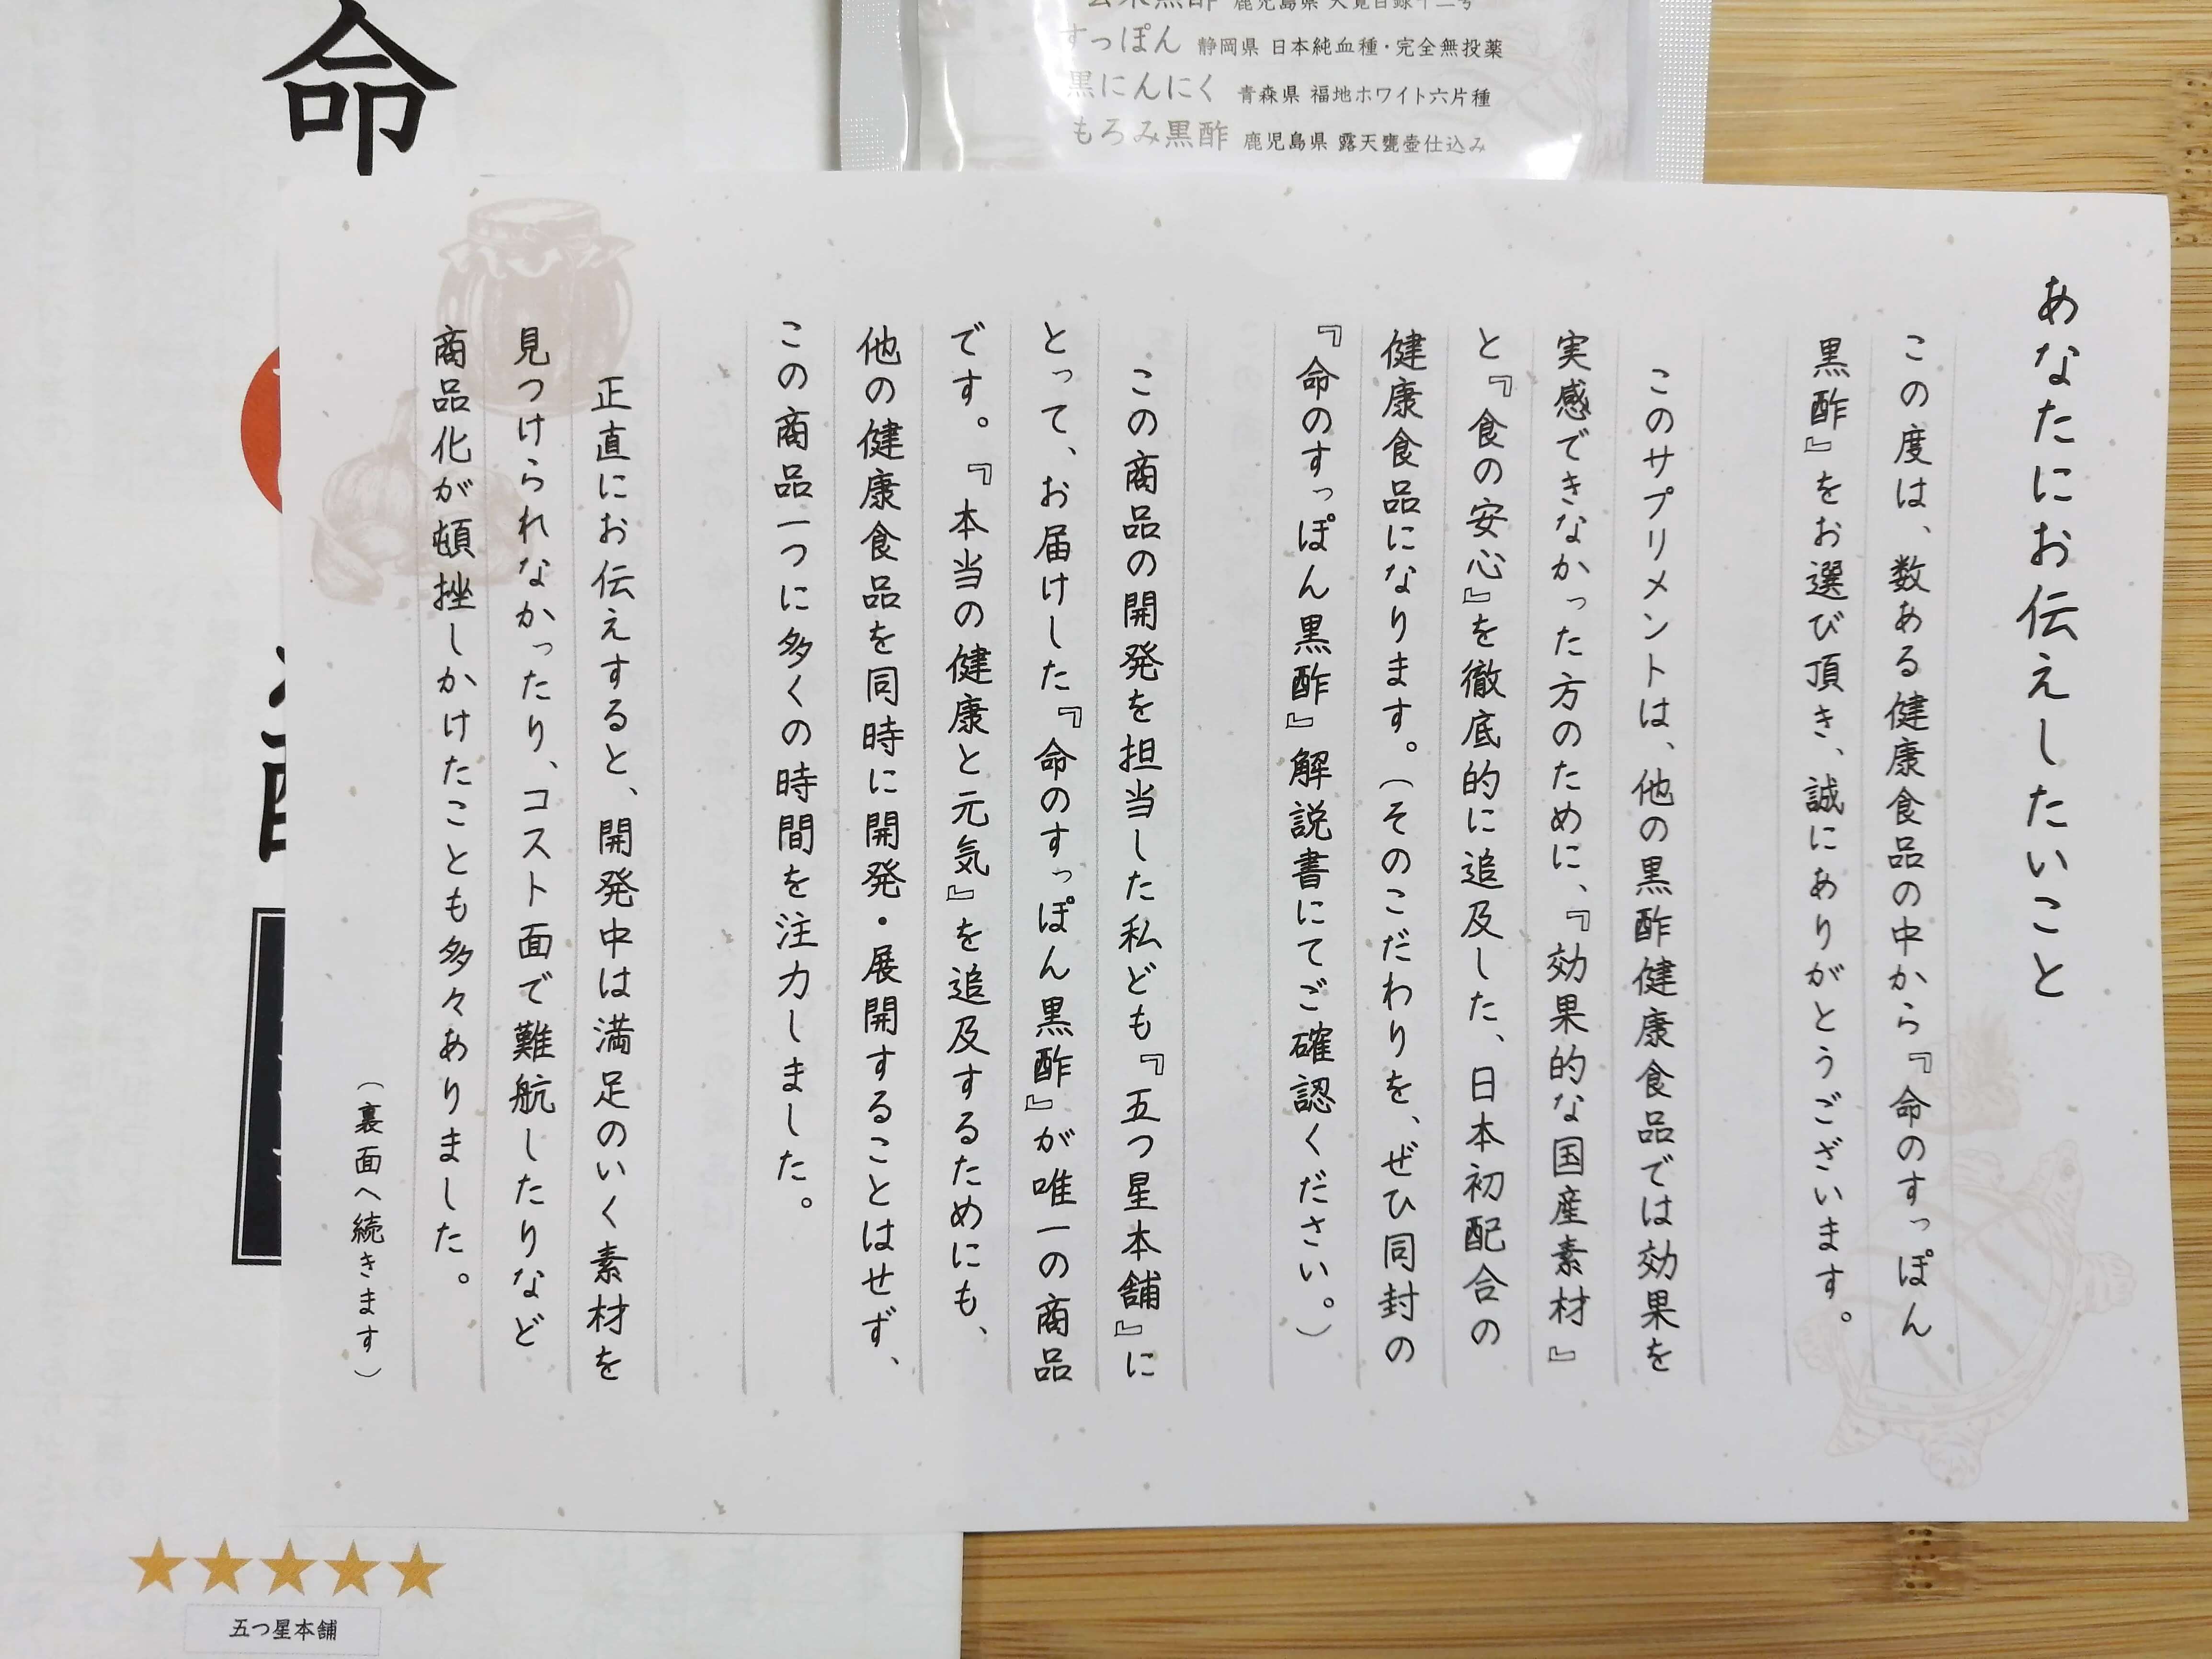 命
すっぽん 静岡県 日本純血種・完全無投薬
黒にんにく 青森県 福地ホワイト六片種
もろみ黒酢 鹿児島県 露天甕壺仕込み
あなたにお伝えしたいこと
この度は、数ある健康食品の中から『命のすっぽん
黒酢』をお選び頂き、誠にありがとうございます。
このサプリメントは、他の黒酢健康食品では効果を
実感できなかった方のために、『効果的な国産素材』
と『食の安心』を徹底的に追及した、日本初配合の
健康食品になります。（そのこだわりを、ぜひ同封の
『命のすっぽん黒酢』解説書にてご確認ください。）
この商品の開発を担当した私ども『五つ星本舗』に
とって、お届けした『命のすっぽん黒酢』が唯一の商品
です。『本当の健康と元気』を追及するためにも、
他の健康食品を同時に開発・展開することはせず、
この商品一つに多くの時間を注力しました。
正直にお伝えすると、開発中は満足のいく素材を
見つけられなかったり、コスト面で難航したりなど
商品化が頓挫しかけたことも多々ありました。
（裏面へ続きます）
五つ星本舗